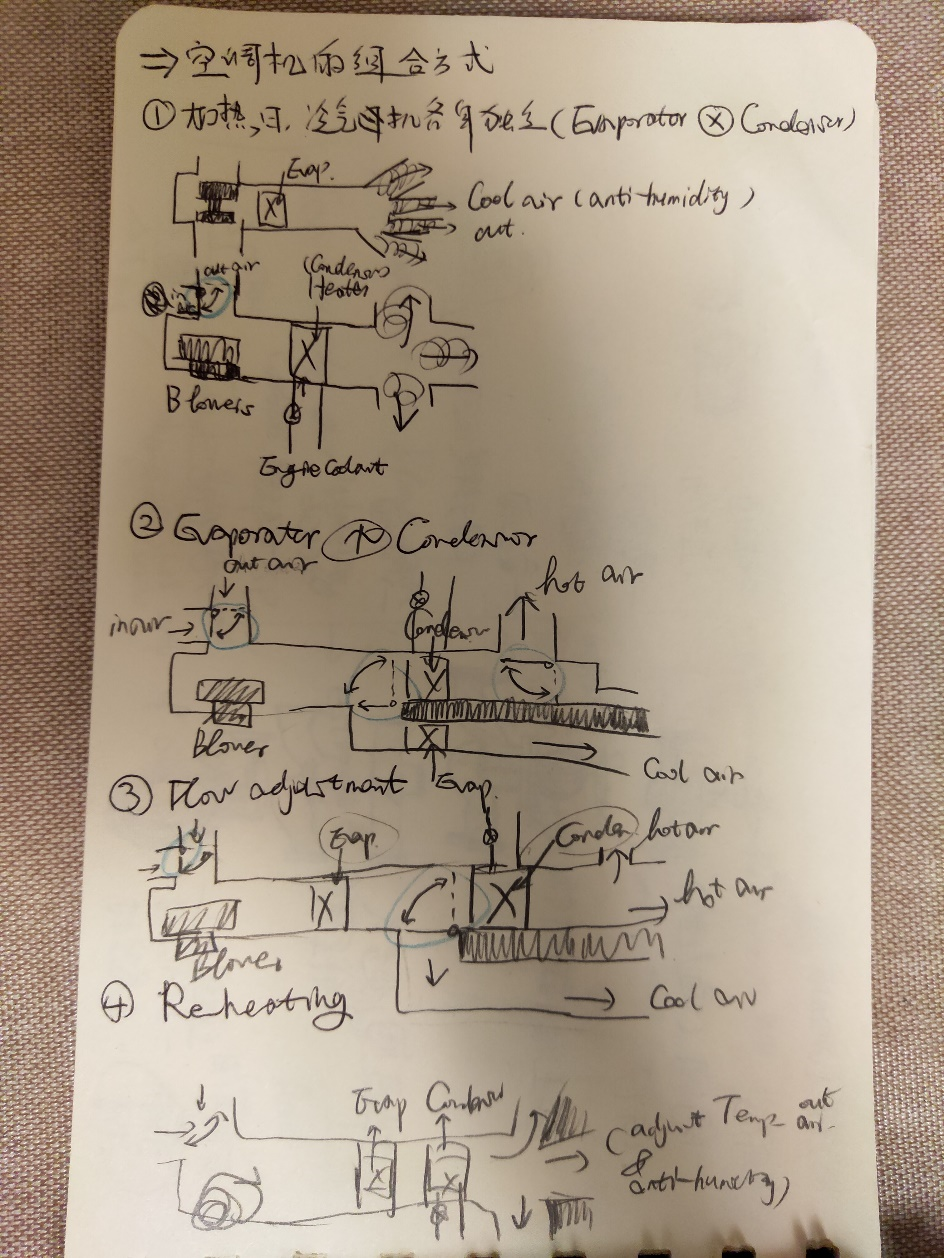 ⇒ 空调机的组合方式
① 加热,冷气机各自独立(Evaporator ⊗ Condenser)
Evap.
Cool air (anti-humidity)
out.
out air
(Condenser)
Heater
in
Blowers
Engine Coolant
② Evaporator Condensor
out air
hot air
inair
Condensor
Blower
Cool air
Evap.
③ Flow adjustment
Evap.
Conden
hot air
hot air
Blower
Cool air
④ Reheating
Evap Condensor
(adjust Temp out air.
&
anti-humidity)